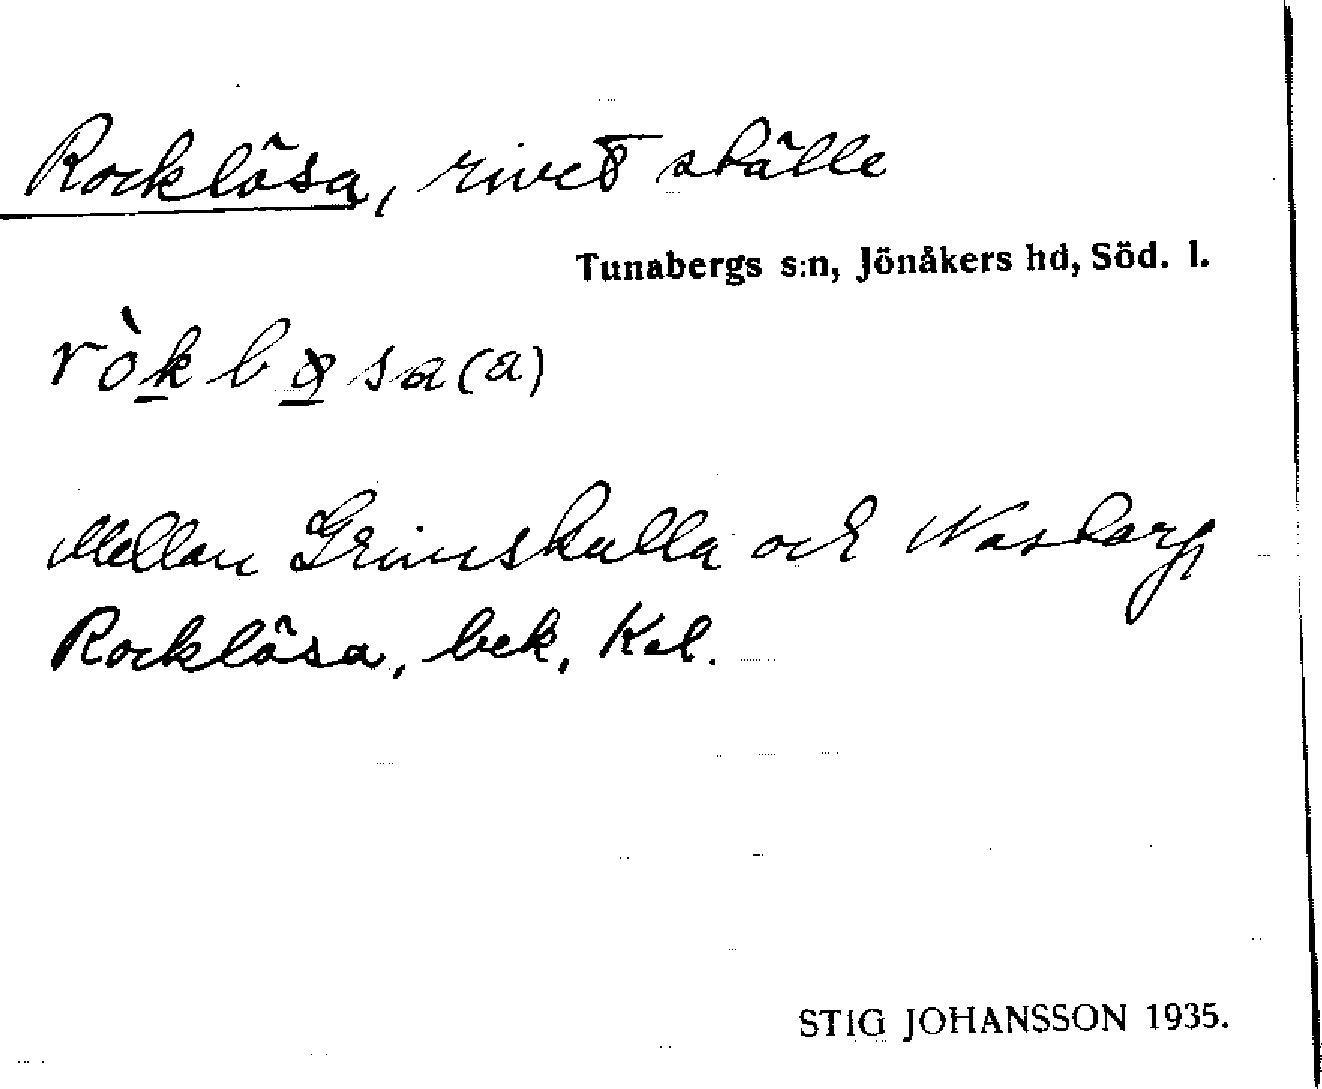 Rocklösa, rivet ställe
Tunabergs s:n, Jönåkers hd, Söd. l.
ròkløsa(a)
Mellan Grinskulla och Nastorp
Rocklösa, bek, Kol.
STIG JOHANSSON 1935.